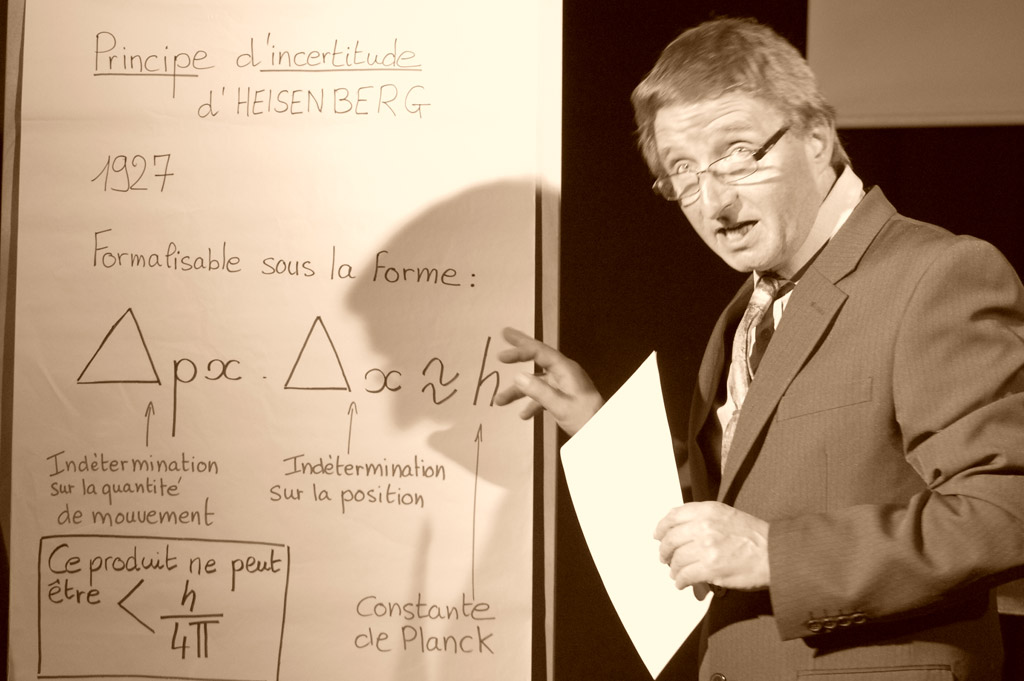 Principe d'incertitude
d'HEISENBERG
1927
Formalisable sous la forme :
Δpx . Δx ≈ h
Indétermination
sur la quantité
de mouvement
Indétermination
sur la position
Constante
de Planck
Ce produit ne peut
être < h
4π